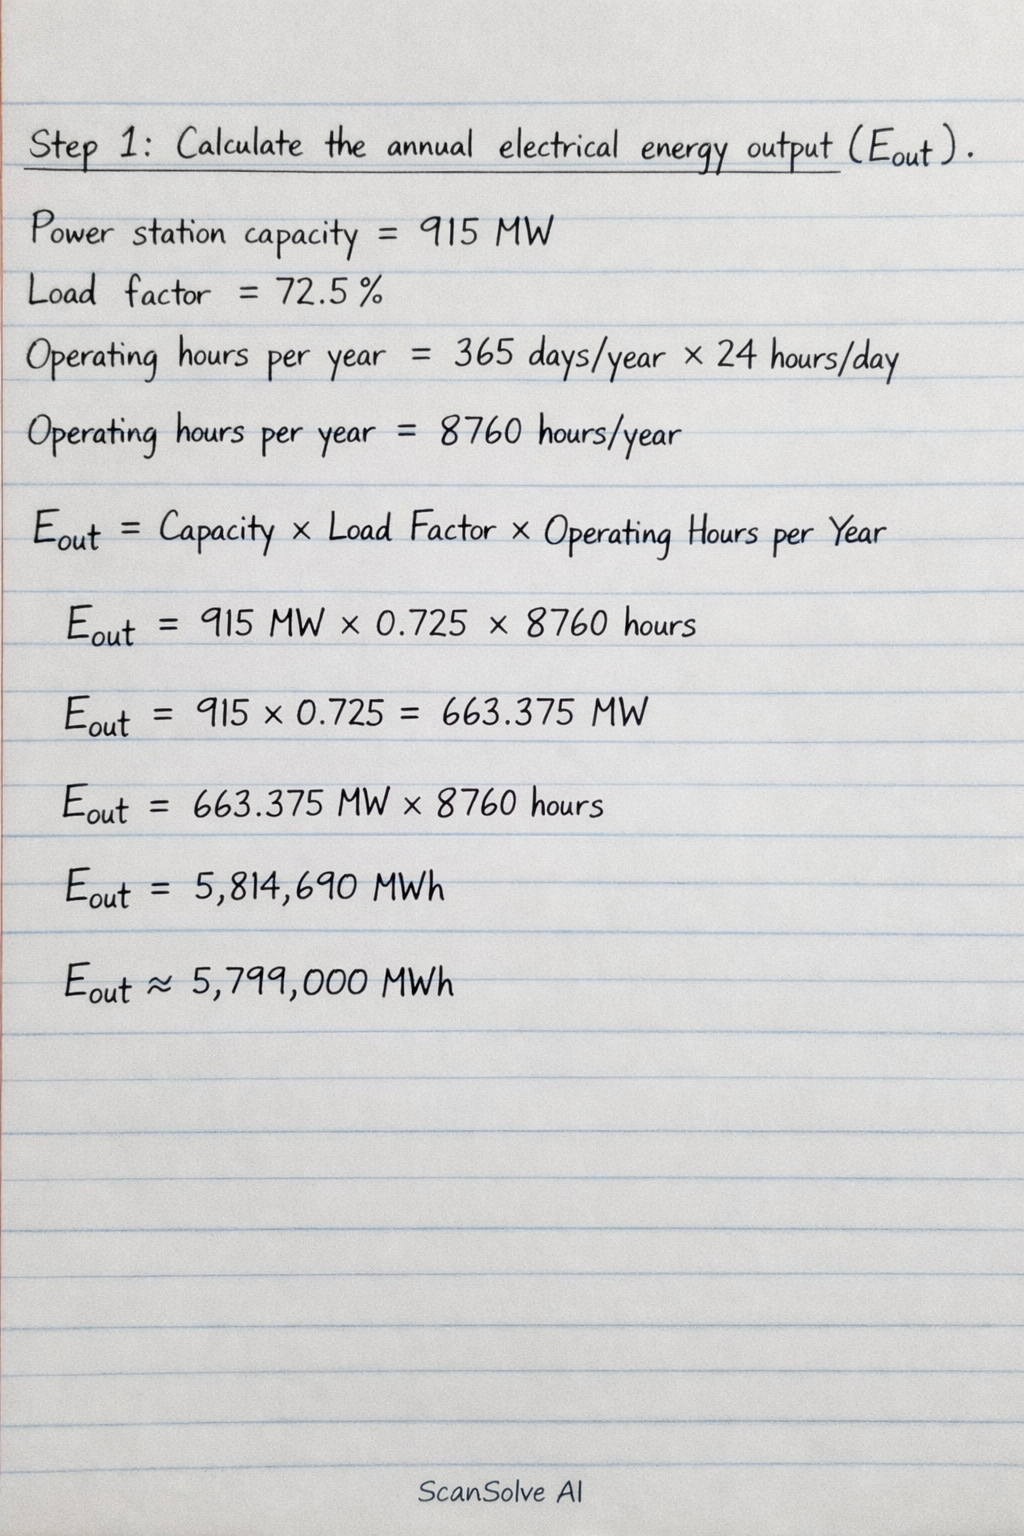 Step 1: Calculate the annual electrical energy output (Eout).
Power station capacity = 915 MW
Load factor = 72.5%
Operating hours per year = 365 days/year × 24 hours/day
Operating hours per year = 8760 hours/year
Eout = Capacity × Load Factor × Operating Hours per Year
Eout = 915 MW × 0.725 × 8760 hours
Eout = 915 × 0.725 = 663.375 MW
Eout = 663.375 MW × 8760 hours
Eout = 5,814,690 MWh
Eout ≈ 5,799,000 MWh
ScanSolve AI